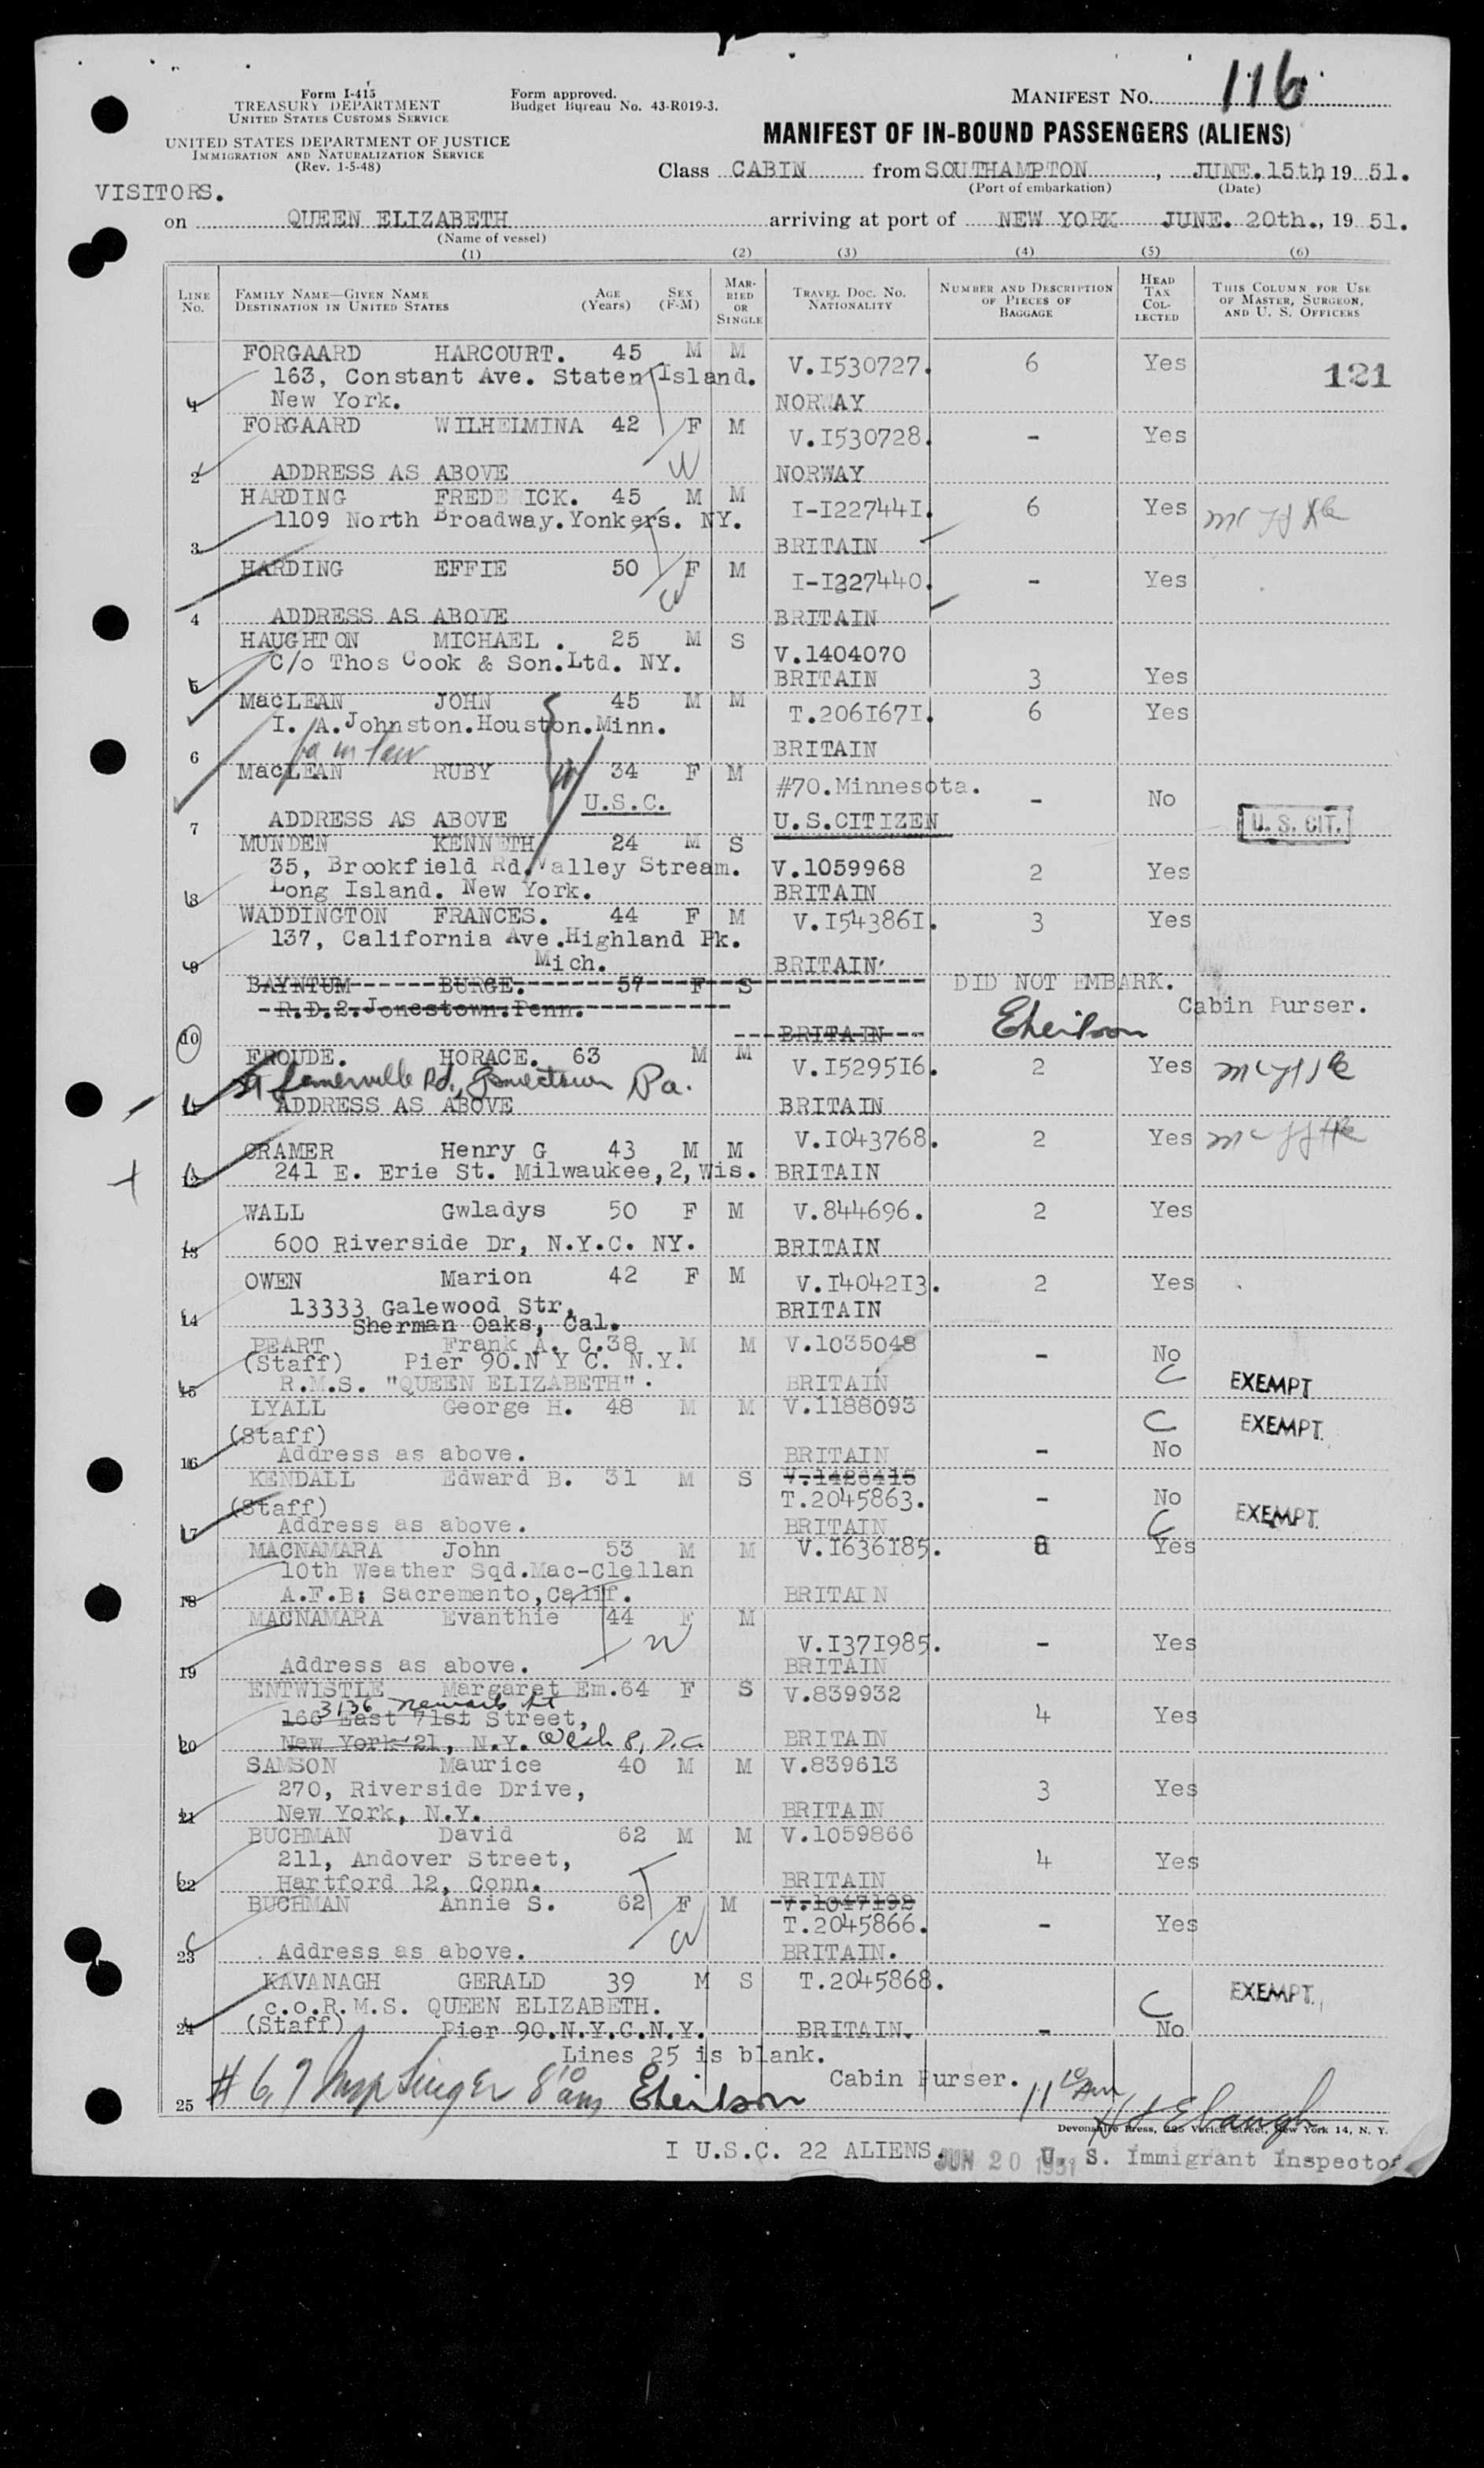 Form I-415
TREASURY DEPARTMENT
UNITED STATES CUSTOMS SERVICE
UNITED STATES DEPARTMENT OF JUSTICE
IMMIGRATION AND NATURALIZATION SERVICE
(Rev. 1-5-48)
Form approved.
Budget Bureau No. 43-R019-3.
MANIFEST NO. 116
MANIFEST OF IN-BOUND PASSENGERS (ALIENS)
Class CABIN from SOUTHAMPTON, JUNE. 15th, 19 51.
(Port of embarkation) (Date)
VISITORS.
on QUEEN ELIZABETH arriving at port of NEW YORK JUNE. 20th., 19 51.
(Name of vessel)
(1) (2) (3) (4) (5) (6)
LINE NO. FAMILY NAME—GIVEN NAME DESTINATION IN UNITED STATES AGE (YEARS) SEX (F-M) MARRIED OR SINGLE TRAVEL DOC. NO. NATIONALITY NUMBER AND DESCRIPTION OF PIECES OF BAGGAGE HEAD TAX COLLECTED THIS COLUMN FOR USE OF MASTER, SURGEON, AND U. S. OFFICERS
FORGAARD HARCOURT. 45 M M V.I530727. 6 Yes 121
163, Constant Ave. Staten Island.
1 New York. NORWAY
FORGAARD WILHELMINA 42 F M V.I530728. - Yes
W
2 ADDRESS AS ABOVE NORWAY
HARDING FREDERICK. 45 M M I-I22744I. 6 Yes
1109 North Broadway. Yonkers. NY.
3 BRITAIN
HARDING EFFIE 50 F M I-I227440. - Yes
W
4 ADDRESS AS ABOVE BRITAIN
HAUGHTON MICHAEL . 25 M S V.1404070
C/o Thos Cook & Son.Ltd. NY.
5 BRITAIN 3 Yes
MacLEAN JOHN 45 M M T.206I67I. 6 Yes
I. A.Johnston.Houston.Minn.
6 fa in law BRITAIN
MacLEAN RUBY 34 F M #70.Minnesota. - No
W U.S.C.
7 ADDRESS AS ABOVE U.S.CITIZEN U. S. CIT.
MUNDEN KENNETH 24 M S
35, Brookfield Rd. Valley Stream. V.1059968 2 Yes
8 Long Island. New York. BRITAIN
WADDINGTON FRANCES. 44 F M V.I54386I. 3 Yes
137, California Ave.Highland Pk.
9 Mich. BRITAIN
BAYNTUM BURGE. 57 F S DID NOT EMBARK.
R.D.2.Jonestown.Penn. Cabin Purser.
10 BRITAIN
FROUDE. HORACE. 63 M M V.I5295I6. 2 Yes
Somerville Rd., Pa.
11 ADDRESS AS ABOVE BRITAIN
CRAMER Henry G 43 M M V.I043768. 2 Yes
12 241 E. Erie St. Milwaukee,2,Wis. BRITAIN
WALL Gwladys 50 F M V.844696. 2 Yes
13 600 Riverside Dr, N.Y.C. NY. BRITAIN
OWEN Marion 42 F M V.I4042I3. 2 Yes
13333 Galewood Str,
14 Sherman Oaks, Cal. BRITAIN
PEART Frank A. C.38 M M V.1035048
(Staff) Pier 90.N Y C. N.Y. - No
15 R.M.S. "QUEEN ELIZABETH". BRITAIN C EXEMPT
LYALL George H. 48 M M V.1188093
(Staff) C EXEMPT.
16 Address as above. BRITAIN - No
KENDALL Edward B. 31 M S V.1426415
(Staff) T.2045863. - No
17 Address as above. BRITAIN C EXEMPT.
MACNAMARA John 53 M M V.I636I85. 8 Yes
10th Weather Sqd.Mac-Clellan
18 A.F.B: Sacremento,Calif. BRITAIN
MACNAMARA Evanthie 44 F M
W V.I37I985. - Yes
19 Address as above. BRITAIN
ENTWISTLE Margaret Em.64 F S V.839932
3136 Newark St
160 East 71st Street, 4 Yes
20 New York 21, N.Y. Wash 8, D.C. BRITAIN
SAMSON Maurice 40 M M V.839613
270, Riverside Drive, 3 Yes
21 New York, N.Y. BRITAIN
BUCHMAN David 62 M M V.1059866
211, Andover Street, 4 Yes
22 Hartford 12, Conn. BRITAIN
BUCHMAN Annie S. 62 F M V.1047192
W T.2045866. - Yes
23 Address as above. BRITAIN.
KAVANAGH GERALD 39 M S T.2045868.
c.o.R.M.S. QUEEN ELIZABETH. C EXEMPT.
24 (Staff) Pier 90.N.Y.C.N.Y. BRITAIN. - No
Lines 25 is blank.
Cabin Purser.
25 # 6, 7 Insp Singer 8 10 am 11 10 AM
Devonshire Press, 225 Varick Street, New York 14, N. Y.
I U.S.C. 22 ALIENS. JUN 20 1951 U. S. Immigrant Inspector